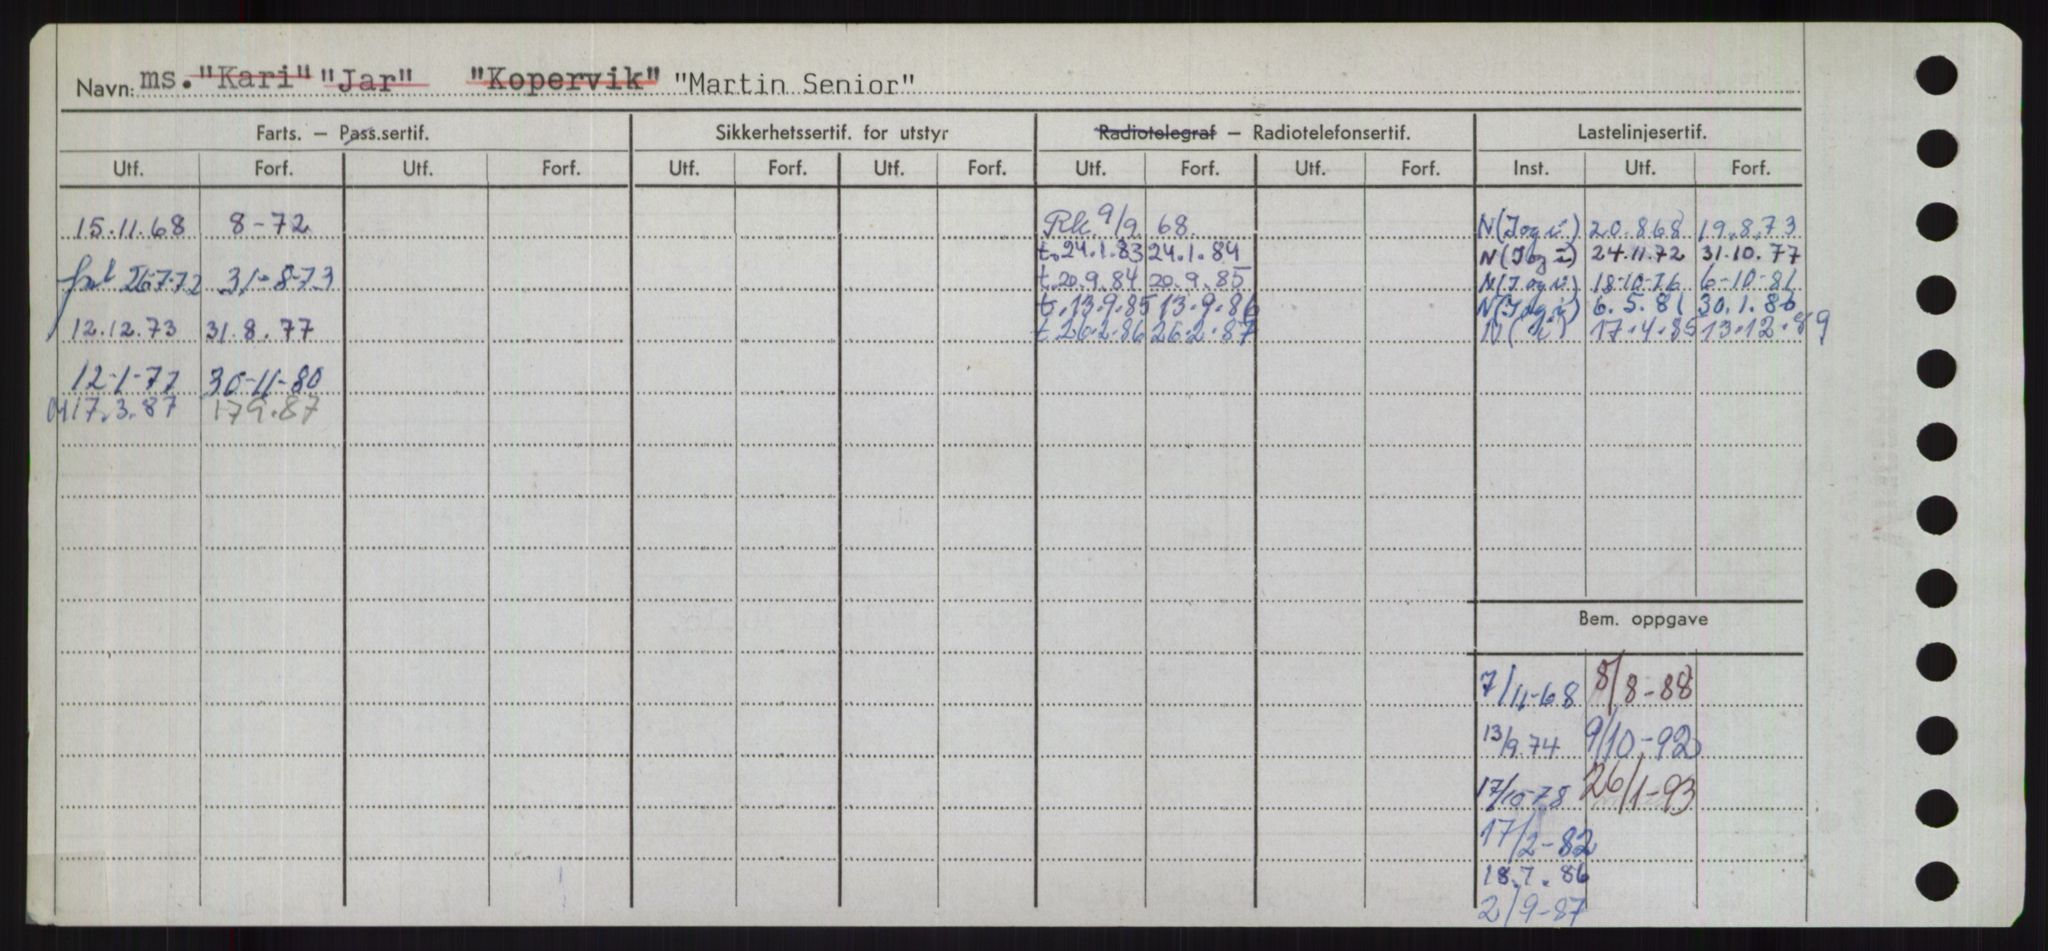 Navn: ms. "Kari" "Jar" "Kopervik" "Martin Senior"
Farts. – Pass.sertif. Sikkerhetssertif. for utstyr Radiotelegraf – Radiotelefonsertif. Lastelinjesertif.
Utf. Forf. Utf. Forf. Utf. Forf. Utf. Forf. Utf. Forf. Utf. Forf. Inst. Utf. Forf.
15.11.68 8-72 Rk. 9/9 68. N(I og i) 20.8.68 19.8.73
t. 24.1.83 24.1.84 N(I og i) 24.11.72 31.10.77
26.7.72 31-8-73 t. 20.9.84 20.9.85 N(I og i) 18-10-76 6-10-81
t. 13.9.85 13.9.86 N(I og i) 6.5.81 30.1.86
12.12.73 31.8.77 t 26.2.86 26.2.87 N( i) 17.4.85 13.12.89
12-1-77 30-11-80
17.3.87 17.9.87
Bem. oppgave
7/11-68 8/8-88
13/9.74 9/10-92
17/10-78 26/1-93
17/2-82
18.7.86
2/9-87